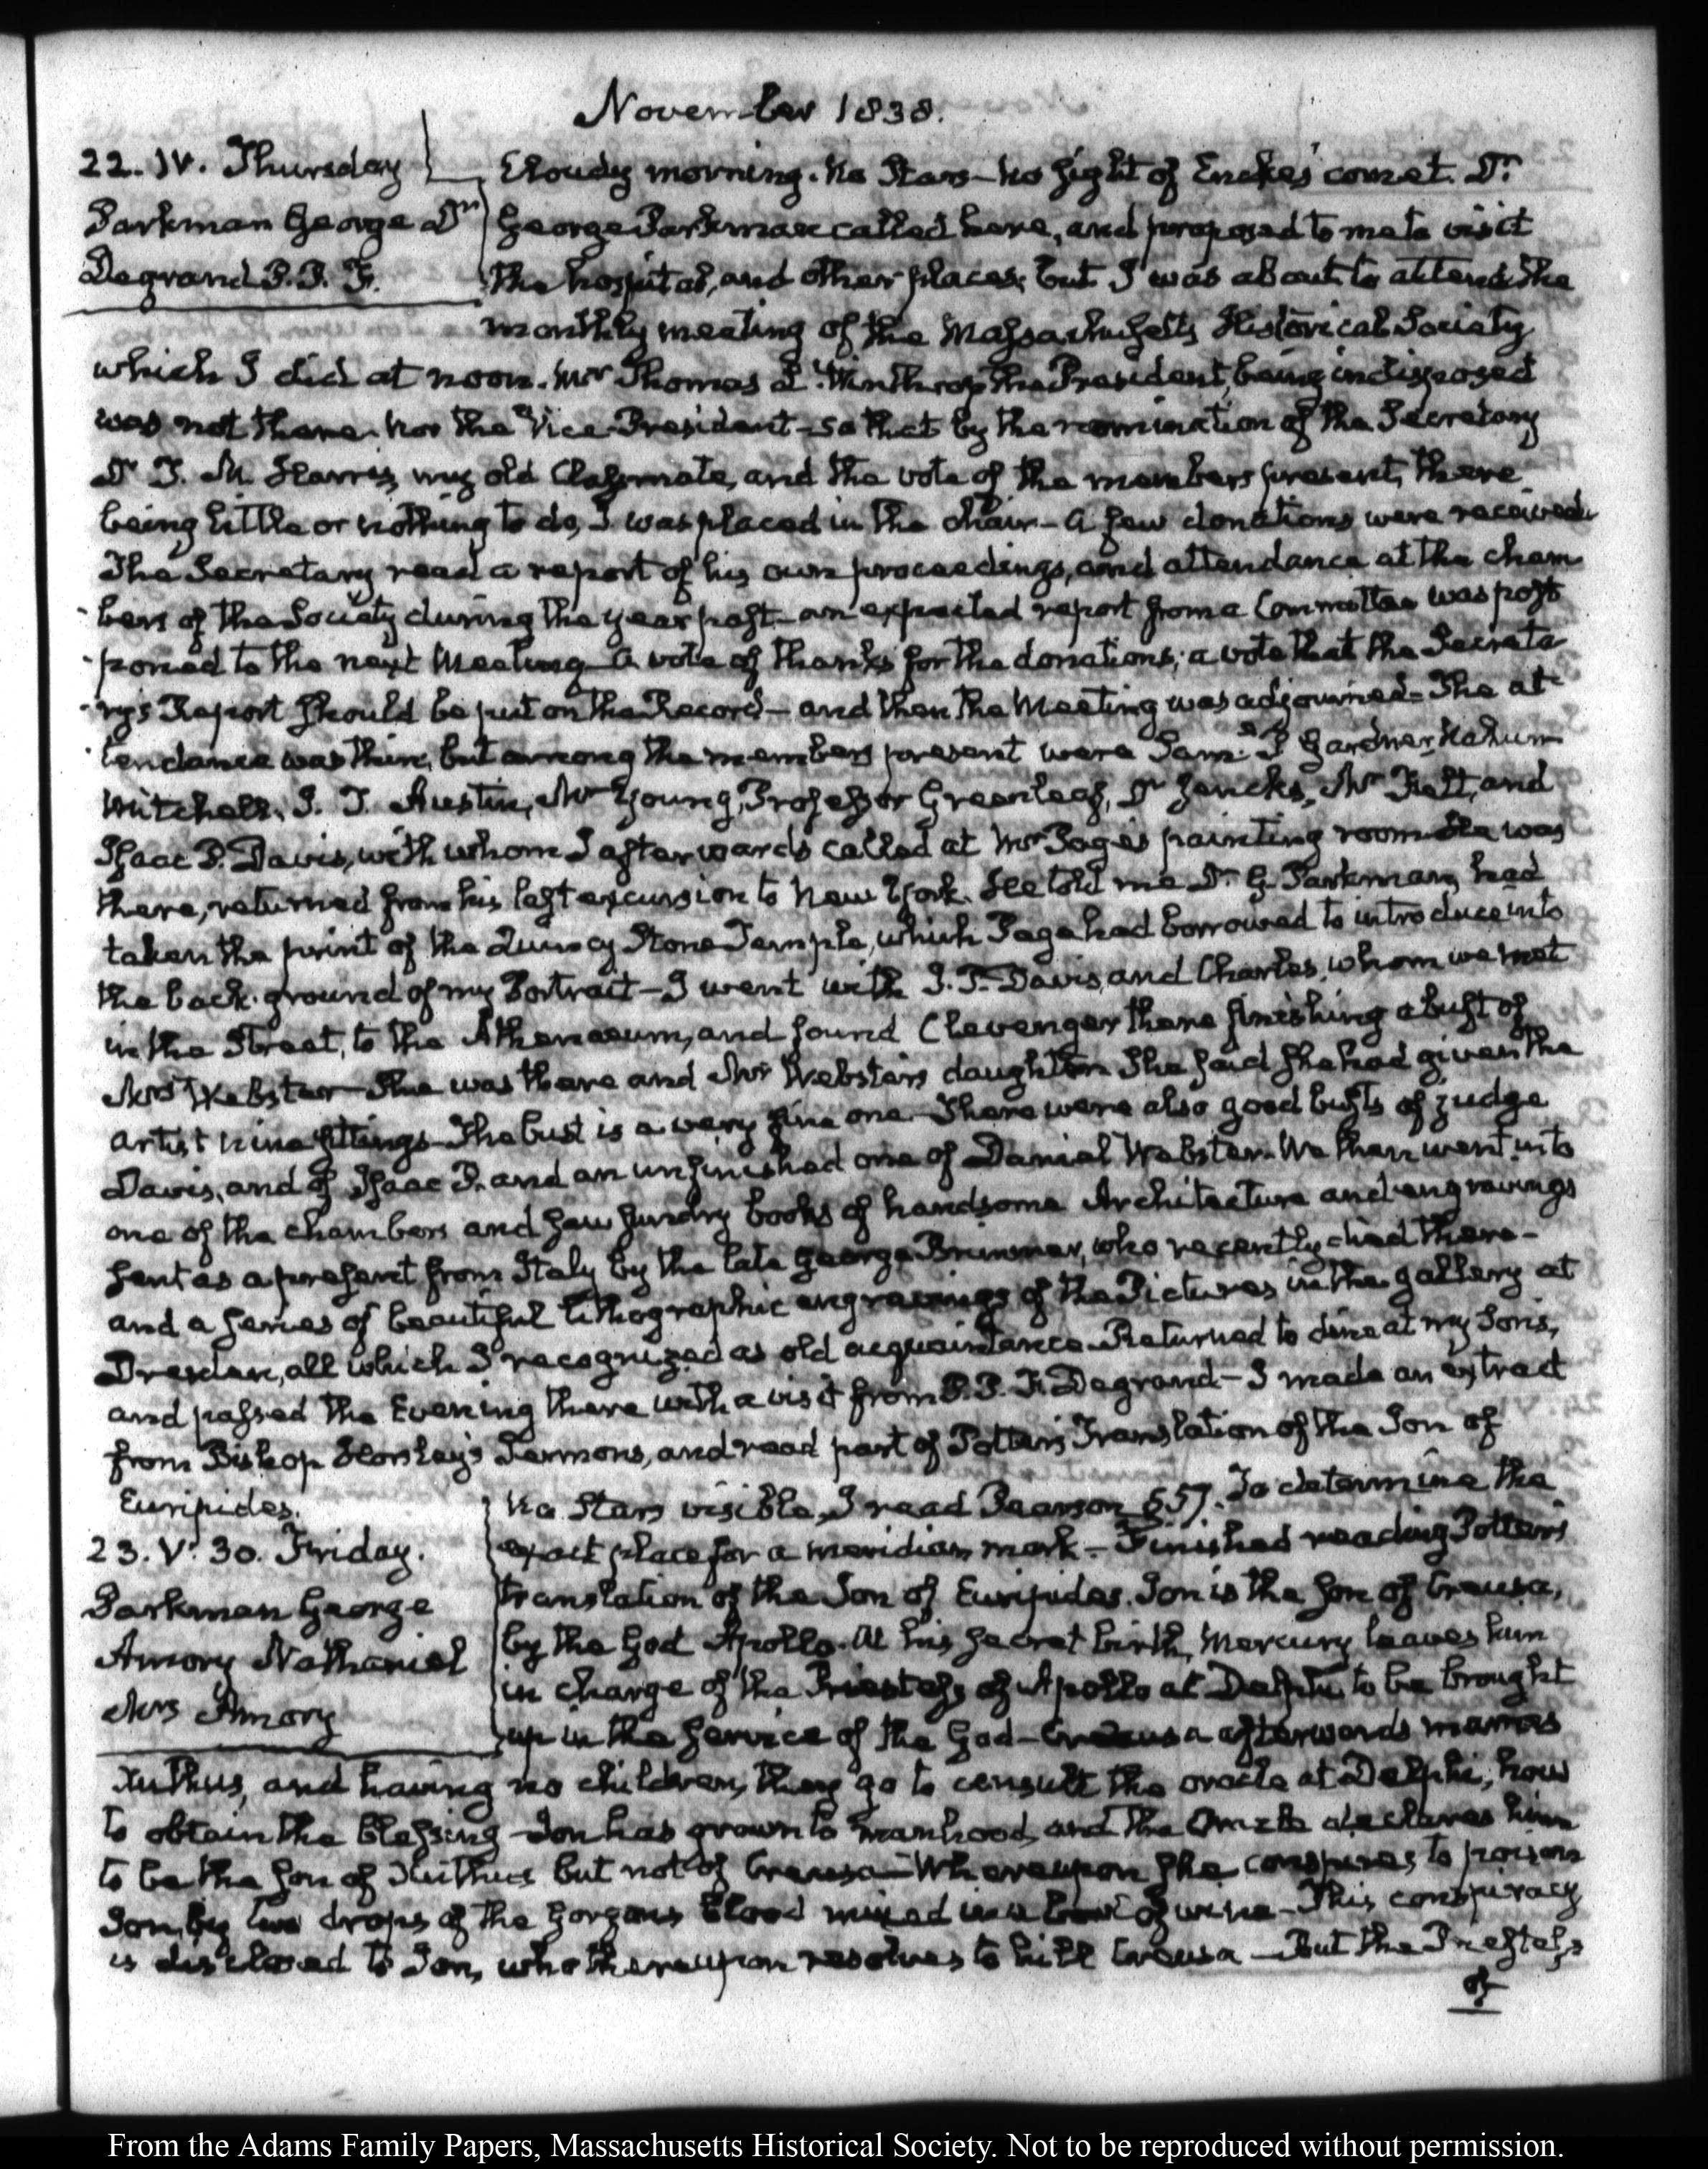 November 1838.
22. IV. Thursday
Parkman George Dr
Degrand P. P. F.
Cloudy morning. No Stars - no sight of Encke's comet. Dr.
George Parkman called here, and proposed to me to visit
the hospital, and other places; but I was about to attend the
monthly meeting of the Massachusetts Historical Society
which I did at noon. Mr Thomas L. Winthrop the President, being indisposed
was not there. Nor the Vice-President - so that by the nomination of the Secretary
Dr T. M. Harris, my old Classmate, and the vote of the members present, there
being little or nothing to do, I was placed in the chair - A few donations were received.
The Secretary read a report of his own proceedings, and attendance at the cham
-bers of the Society during the year past - an expected report from a Committee was post
-poned to the next Meeting - A vote of thanks for the donations; a vote that the Secreta
-ry's Report should be put on the Record - and then the Meeting was adjourned - The at
-tendance was thin, but among the members present were Saml. P. Gardner, Nahum
Mitchell, J. T. Austin, Mr Young, Professor Greenleaf, Dr Jencks, Mr Felt, and
Isaac P. Davis, with whom I afterwards called at Mr Page's painting room - He was
there, returned from his last excursion to New York. He told me Dr. G. Parkman had
taken the print of the Quincy Stone Temple, which Page had borrowed to introduce into
the back-ground of my Portrait - I went with I. P. Davis, and Charles, whom we met
in the Street, to the Athenaeum, and found Clevenger there finishing a bust of
Mrs Webster - She was there and Mr Webster's daughter. She said she had given the
artist nine sittings - The bust is a very fine one - There were also good busts of Judge
Davis, and of Isaac P. and an unfinished one of Daniel Webster. We then went into
one of the chambers and saw sundry books of handsome Architecture and engravings
sent as a present from Italy by the late George Brimmer, who recently died there -
and a series of beautiful lithographic engravings of the Pictures in the gallery at
Dresden, all which I recognized as old acquaintance - Returned to dine at my Son's,
and passed the Evening there with a visit from P. P. F. Degrand - I made an extract
from Bishop Horsley's Sermons, and read part of Potter's Translation of the Ion of
Euripides.
23. V. 30. Friday.
Parkman George
Amory Nathaniel
Mrs Amory
No Stars visible, I read Pearson §57. To determine the
exact place for a meridian mark - Finished reading Potter's
translation of the Ion of Euripides. Ion is the son of Creusa,
by the God Apollo. At his secret birth, Mercury leaves him
in charge of the Priestess of Apollo at Delphi to be brought
up in the service of the God - Creusa afterwards marries
Xuthus, and having no children, they go to consult the oracle at Delphi, how
to obtain the blessing - Ion has grown to manhood, and the Oracle declares him
to be the son of Xuthus but not of Creusa - Whereupon she conspires to poison
Ion, by two drops of the Gorgons blood mixed in a bowl of wine - This conspiracy
is disclosed to Ion, who thereupon resolves to kill Creusa - But the Priestess
of
From the Adams Family Papers, Massachusetts Historical Society. Not to be reproduced without permission.